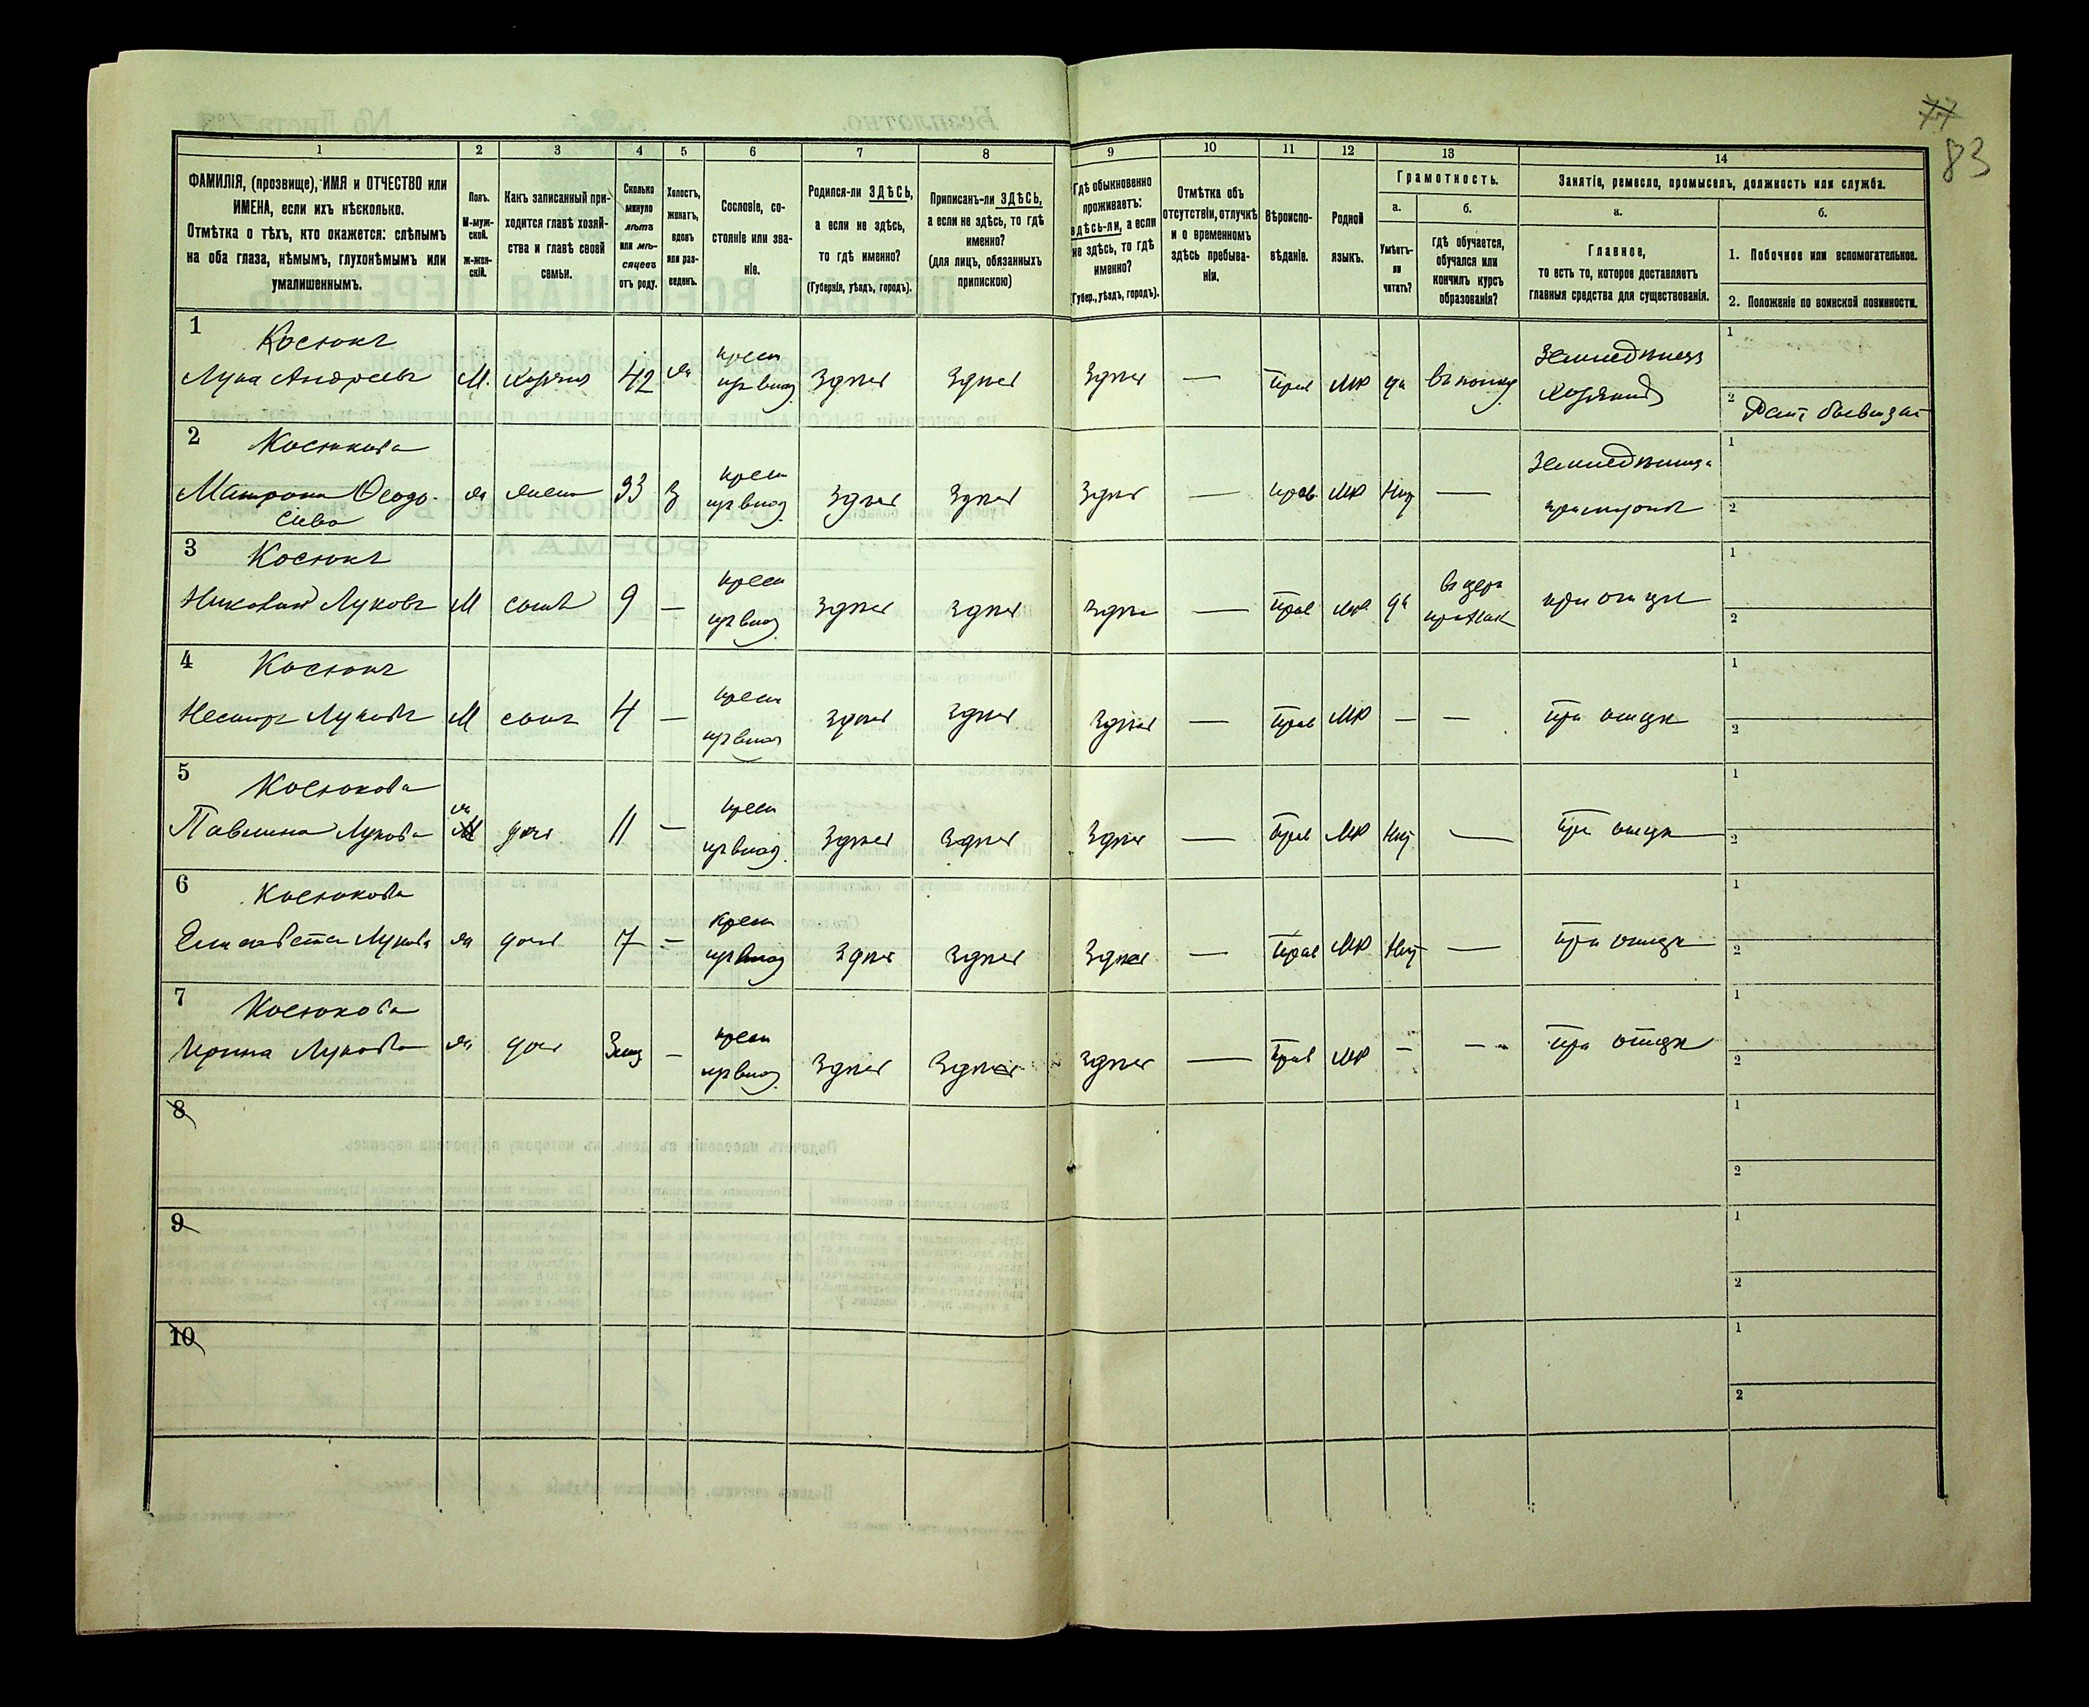 77
83
1 2 3 4 5 6 7 8 9 10 11 12 13 14
ФАМИЛІЯ, (прозвище), ИМЯ и ОТЧЕСТВО или
ИМЕНА, если ихъ нѣсколько.
Отмѣтка о тѣхъ, кто окажется: слѣпымъ
на оба глаза, нѣмымъ, глухонѣмымъ или
умалишеннымъ.
Полъ.
М-муж-
ской.
Ж-жен-
скій.
Какъ записанный при-
ходится главѣ хозяй-
ства и главѣ своей
семьи.
Сколько
минуло
лѣтъ
или мѣ-
сяцевъ
отъ роду.
Холостъ,
женатъ,
вдовъ
или раз-
веденъ.
Сословіе, со-
стояніе или зва-
ніе.
Родился-ли ЗДѢСЬ,
а если не здѣсь,
то гдѣ именно?
(Губернія, уѣздъ, городъ).
Приписанъ-ли ЗДѢСЬ,
а если не здѣсь, то гдѣ
именно?
(для лицъ, обязанныхъ
припискою)
Гдѣ обыкновенно
проживаетъ:
здѣсь-ли, а если
не здѣсь, то гдѣ
именно?
(Губер., уѣздъ, городъ).
Отмѣтка объ
отсутствіи, отлучкѣ
и о временномъ
здѣсь пребыва-
ніи.
Вѣроиспо-
вѣданіе.
Родной
языкъ.
Грамотность.
а.
Умѣетъ-
ли
читать?
б.
гдѣ обучается,
обучался или
кончилъ курсъ
образованія?
Занятіе, ремесло, промыселъ, должность или служба.
а.
Главное,
то есть то, которое доставляетъ
главныя средства для существованія.
б.
1. Побочное или вспомогательное.
2. Положеніе по воинской повинности.
1 Косюкъ
Лука Андреевъ М. хозяин 42 ж крест здѣсь здѣсь здѣсь — прав МР да
Земледѣлецъ
хозяинъ
1
2
2 Косюкова
Матрона Ѳеодо-
сіева ж жена 33 з крест здѣсь здѣсь здѣсь — прав МР нѣт —
1
2
3 Косюкъ
Николай Луковъ М сынъ 9 — крест здѣсь здѣсь здѣсь — прав МР да
при отцѣ
1
2
4 Косюкъ
Несторъ Луковъ М сынъ 4 — крест здѣсь здѣсь здѣсь — прав МР — — при отцѣ
1
2
5 Косюкова
Павлина Лукова ж дочь 11 — крест здѣсь здѣсь здѣсь — прав МР нѣт — при отцѣ
1
2
6 Косюкова
Елисавета Лукова ж дочь 7 — крест здѣсь здѣсь здѣсь — прав МР нѣт — при отцѣ
1
2
7 Косюкова
Ирина Лукова ж дочь 3 — крест здѣсь здѣсь здѣсь — прав МР — — при отцѣ
1
2
8
1
2
9
1
2
10
1
2